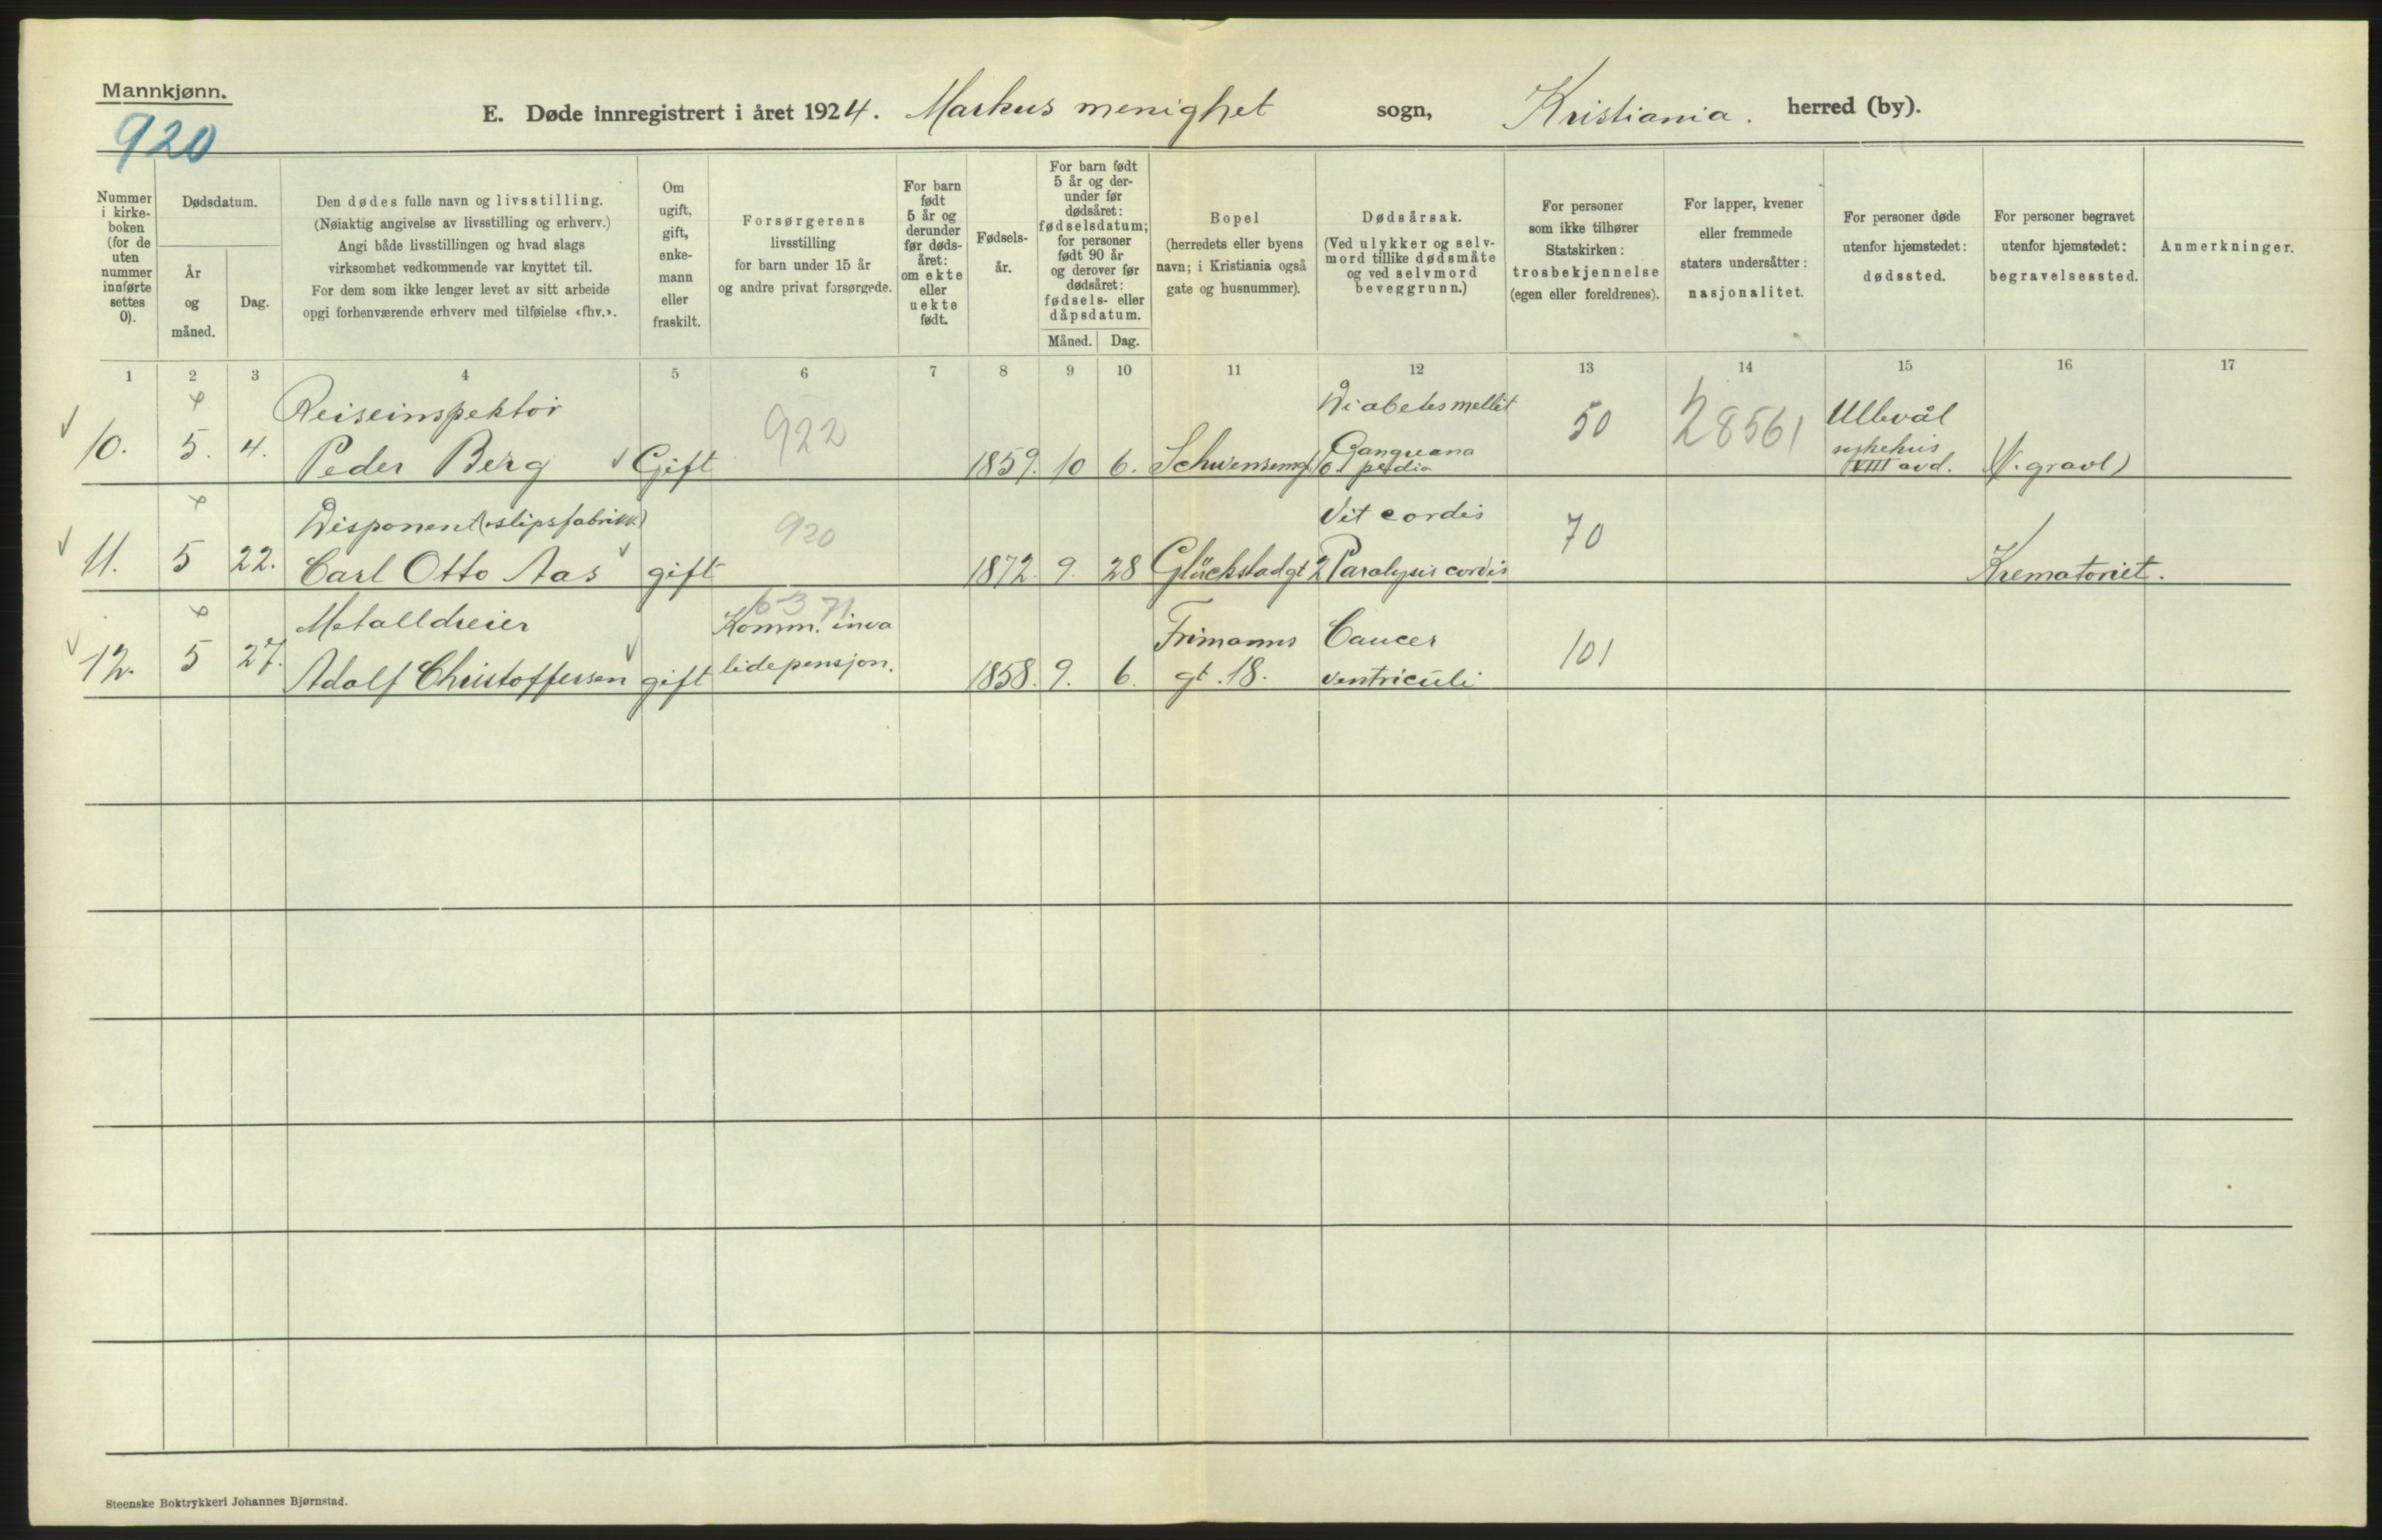 Mannkjønn.
920
E. Døde innregistrert i året 1924. Markus menighet sogn, Kristiania. herred (by).
Nummer i kirke- boken (for de uten nummer innførte settes 0).
Dødsdatum.
År og måned.
Dag.
Den dødes fulle navn og livsstilling.
(Nøiaktig angivelse av livsstilling og erhverv.)
Angi både livsstillingen og hvad slags
virksomhet vedkommende var knyttet til.
For dem som ikke lenger levet av sitt arbeide
opgi forhenværende erhverv med tilføielse «fhv.».
Om ugift, gift, enke- mann eller fraskilt.
Forsørgerens
livsstilling
for barn under 15 år
og andre privat forsørgede.
For barn født 5 år og derunder før døds- året: om ekte eller uekte født.
Fødsels- år.
For barn født 5 år og der- under før dødsåret: fødselsdatum; for personer født 90 år og derover før dødsåret: fødsels- eller dåpsdatum.
Måned. Dag.
Bopel
(herredets eller byens
navn; i Kristiania også
gate og husnummer).
Dødsårsak.
(Ved ulykker og selv-
mord tillike dødsmåte
og ved selvmord
beveggrunn.)
For personer
som ikke tilhører
Statskirken:
trosbekjennelse
(egen eller foreldrenes).
For lapper, kvener
eller fremmede
staters undersåtter:
nasjonalitet.
For personer døde
utenfor hjemstedet:
dødssted.
For personer begravet
utenfor hjemstedet:
begravelsessted.
Anmerkninger.
1 2 3 4 5 6 7 8 9 10 11 12 13 14 15 16 17
Reiseinspektør 922 Diabetes mellit 50 28561 Ullevål
10. 5. 4. Peder Berg Gift 1859. 10 6. Schwensensgt 6 Gangrena pedis sykehus VIII avd. (V. gravl)
Disponent (slipsfabrikk) 920 Vit cordis 70
11. 5 22. Carl Otto Aas gift 1872. 9. 28 Glückstadgt 2 Paralysis cordis Krematoriet.
Metalldreier 6371 Komm. inva Frimanns Cancer 101
12. 5 27. Adolf Christoffersen gift lidepensjon. 1858. 9. 6. gt. 18. ventriculi
Steenske Boktrykkeri Johannes Bjørnstad.